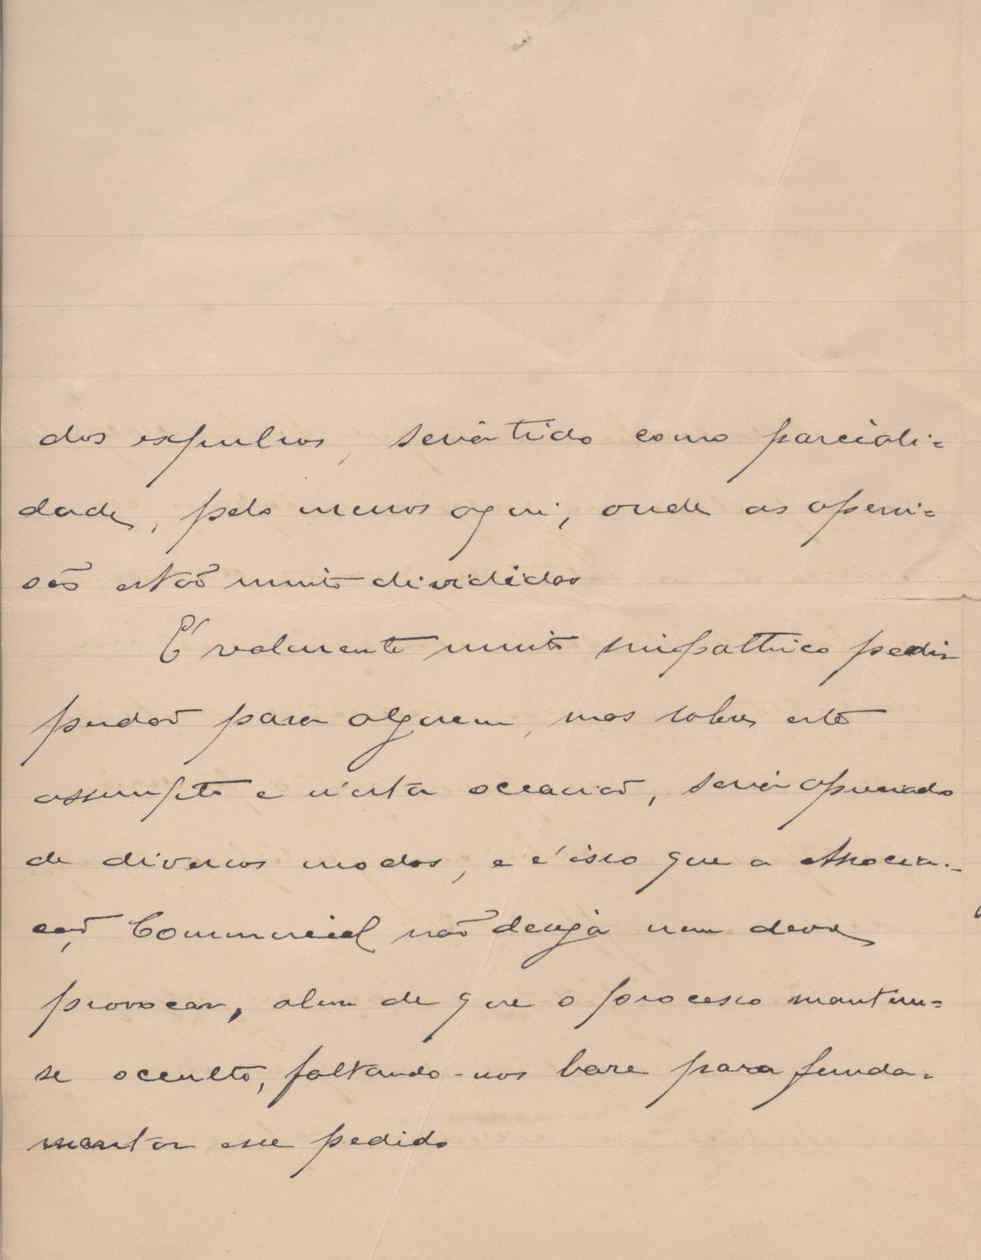 dos expulsos, seria tido como parciali=
dade, pelo menos aqui, onde as openi=
oẽs estaõ muito divididas
É realmente muito simpathico pedir
perdaõ para alguem, mas sobre este
assumpto e n'esta occasiaõ, seria apreciado
de diversos modos, e é isso que a Associa-
çaõ Commercial naõ deseja nem deve
provocar, alem de que o processo mantem=
se occulto, faltando-nos base para funda=
mentar esse pedido